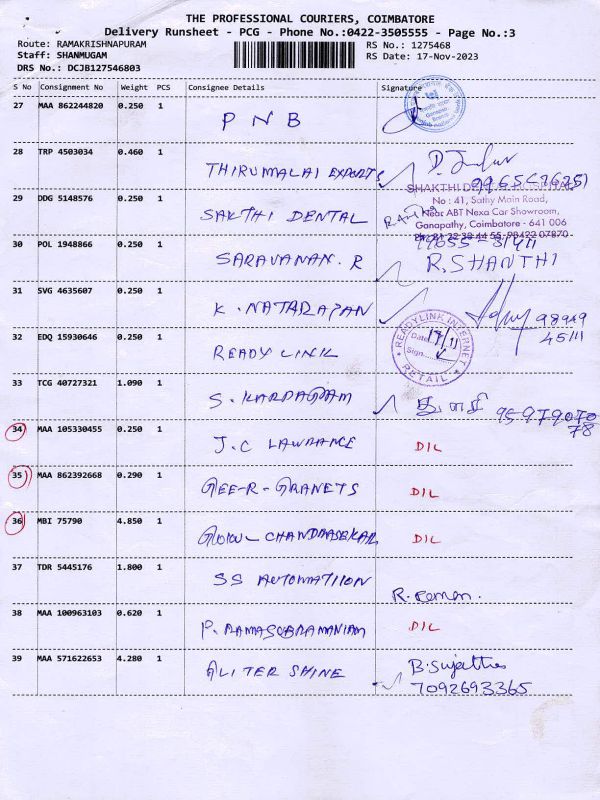 THE PROFESSIONAL COURIERS, COIMBATORE
Delivery Runsheet - PCG - Phone No.:0422-3505555 - Page No.:3
Route: RAMAKRISHNAPURAM
Staff: SHANMUGAM
DRS No.: DCJB127546803
RS No.: 1275468
RS Date: 17-Nov-2023
S No Consignment No Weight PCS Consignee Details Signature
27 MAA 862244820 0.250 1 PNB
28 TRP 4503034 0.460 1 THIRUMALAI EXPORTS
29 DDG 5148576 0.250 1 SAKTHI DENTAL
No : 41, Sathy Main Road,
Near ABT Nexa Car Showroom,
Ganapathy, Coimbatore - 641 006
30 POL 1948866 0.250 1 SARAVANAN. R R.SHANTHI
31 SVG 4635607 0.250 1 K. NATARAPAN 98949
45111
32 EDQ 15930646 0.250 1 READY LINK
READYLINK INTERNET
Date: 17/11
Sign
RETAIL
33 TCG 40727321 1.090 1 S. KARPAGAM 95979070
78
34 MAA 105330455 0.250 1 J.C LAWRANCE DIL
35 MAA 862392668 0.290 1 GEE-R-GRANETS DIL
36 MBI 75790 4.850 1 GOKUL CHANDRASEKAR DIL
37 TDR 5445176 1.800 1 SS AUTOMATIION R. Raman.
38 MAA 100963103 0.620 1 P. RAMASUBRAMANIAM DIL
39 MAA 571622653 4.280 1 ALITER SHINE B. Sujatha
7092693365